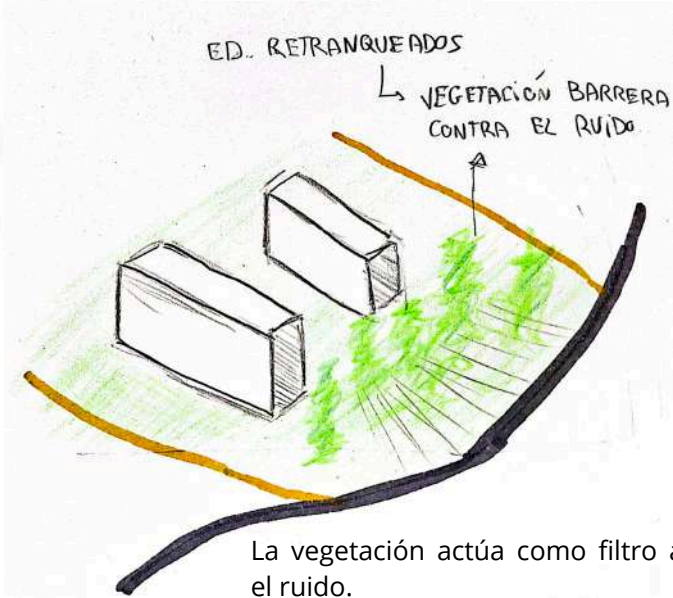 ED. RETRANQUEADOS
VEGETACIÓN BARRERA
CONTRA EL RUIDO
La vegetación actúa como filtro a
el ruido.